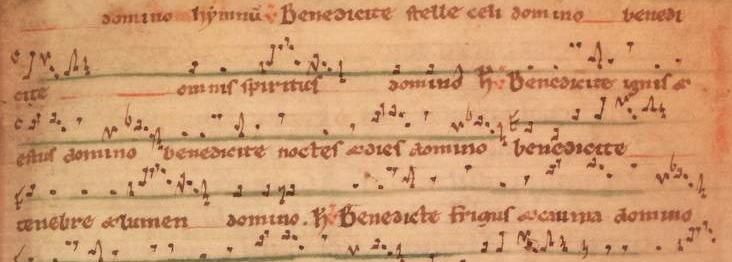 domino hymnū ℣ Benedicite stelle celi domino benedi
cite omnis spiritus domino H ℣ Benedicite ignis &
estus domino benedicite noctes & dies domino benedicite
tenebre & lumen domino. H ℣ Benedicite frigus & cauma domino